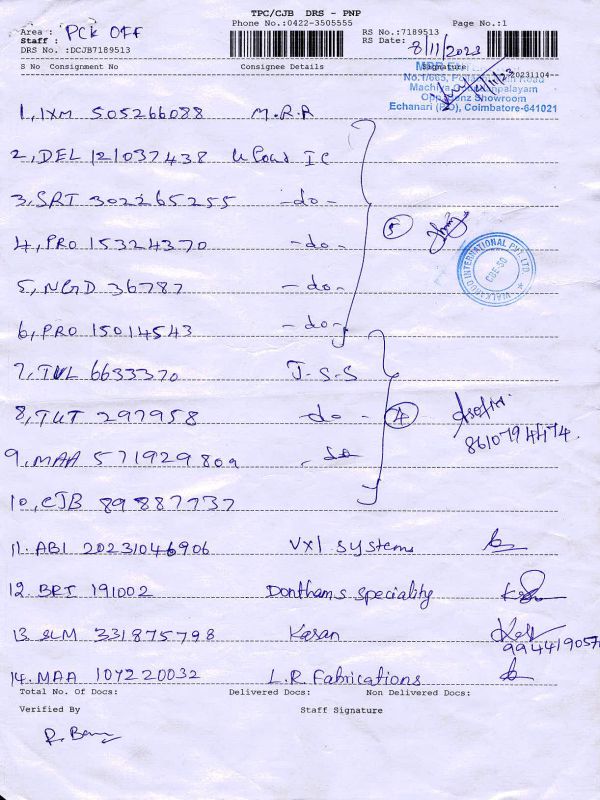 TPC/CJB DRS - PNP
Phone No.:0422-3505555 Page No.:1
Area : PCK OFF
Staff :
DRS No. :DCJB7189513
RS No.:7189513
RS Date: 8/11/2023
S No Consignment No Consignee Details Signature
20231104-
No.1/665, Road
Machiya palayam
Opp. onz Showroom
Echanari (PO), Coimbatore-641021
1, IXM 505266088 M.R.A
2, DEL 121037438 IC
3, SRT 302265255 -do-
4, PRO 15324370 -do-
5, NGD 36787 -do-
6, PRO 15014543 -do-
5
INTERNATIONAL PVT. LTD.
CBE 50
7, TVL 6633370 J.S.S
8, TUT 297958 -do-
4
8610794474.
9. MAA 571929809 -do
10, CJB 89887737
11. ABI 20231046906 VXL Systems
12. BRI 191002 Donthams Speciality
13. SLM 331875798 Kasan
994419057
14. MAA 107220032 L.R Fabrications
Total No. Of Docs: Delivered Docs: Non Delivered Docs:
Verified By Staff Signature